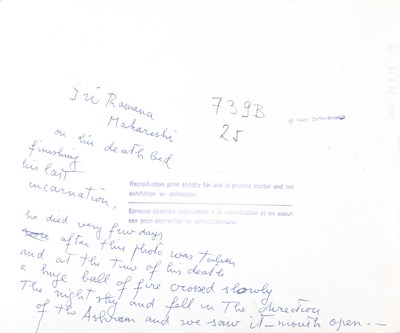 Sri Ramana
Maharshi
739B
25
on his death bed
finishing
his last
incarnation,
Reproduction print strictly for use in printed matter and not
exhibition or collection.
Epreuve destinée uniquement à la reproduction et en aucun
cas pour exposition ou collectionneurs.
he died very few days
after this photo was taken
and at the time of his death
a huge ball of fire crossed slowly
The night sky and fell in The direction
of the Ashram and we saw it - mouth open. -